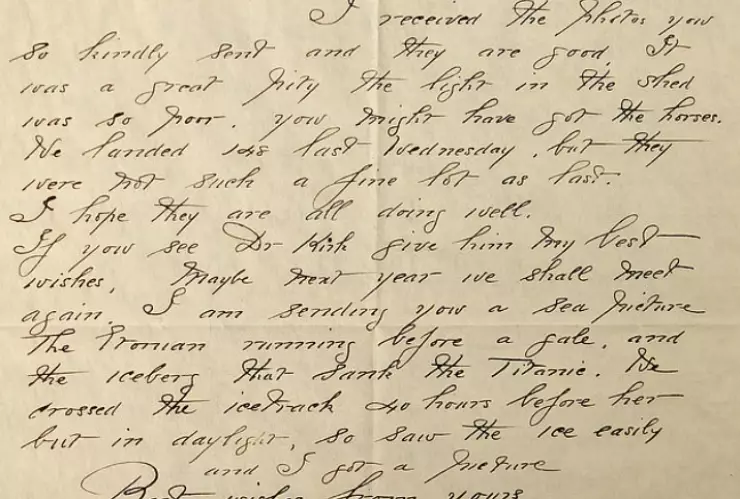 I received the photos you
so kindly sent and they are good. It
was a great pity the light in the shed
was so poor. you might have got the horses.
We landed 148 last Wednesday, but they
were not such a fine lot as last.
I hope they are all doing well.
If you see Dr Kirk give him my best
wishes, Maybe next year we shall meet
again. I am sending you a sea picture
The Etonian running before a gale, and
the iceberg that sank the Titanic. We
crossed the icetrack 40 hours before her
but in daylight, so saw the ice easily
and I got a picture
Best wishes from yours